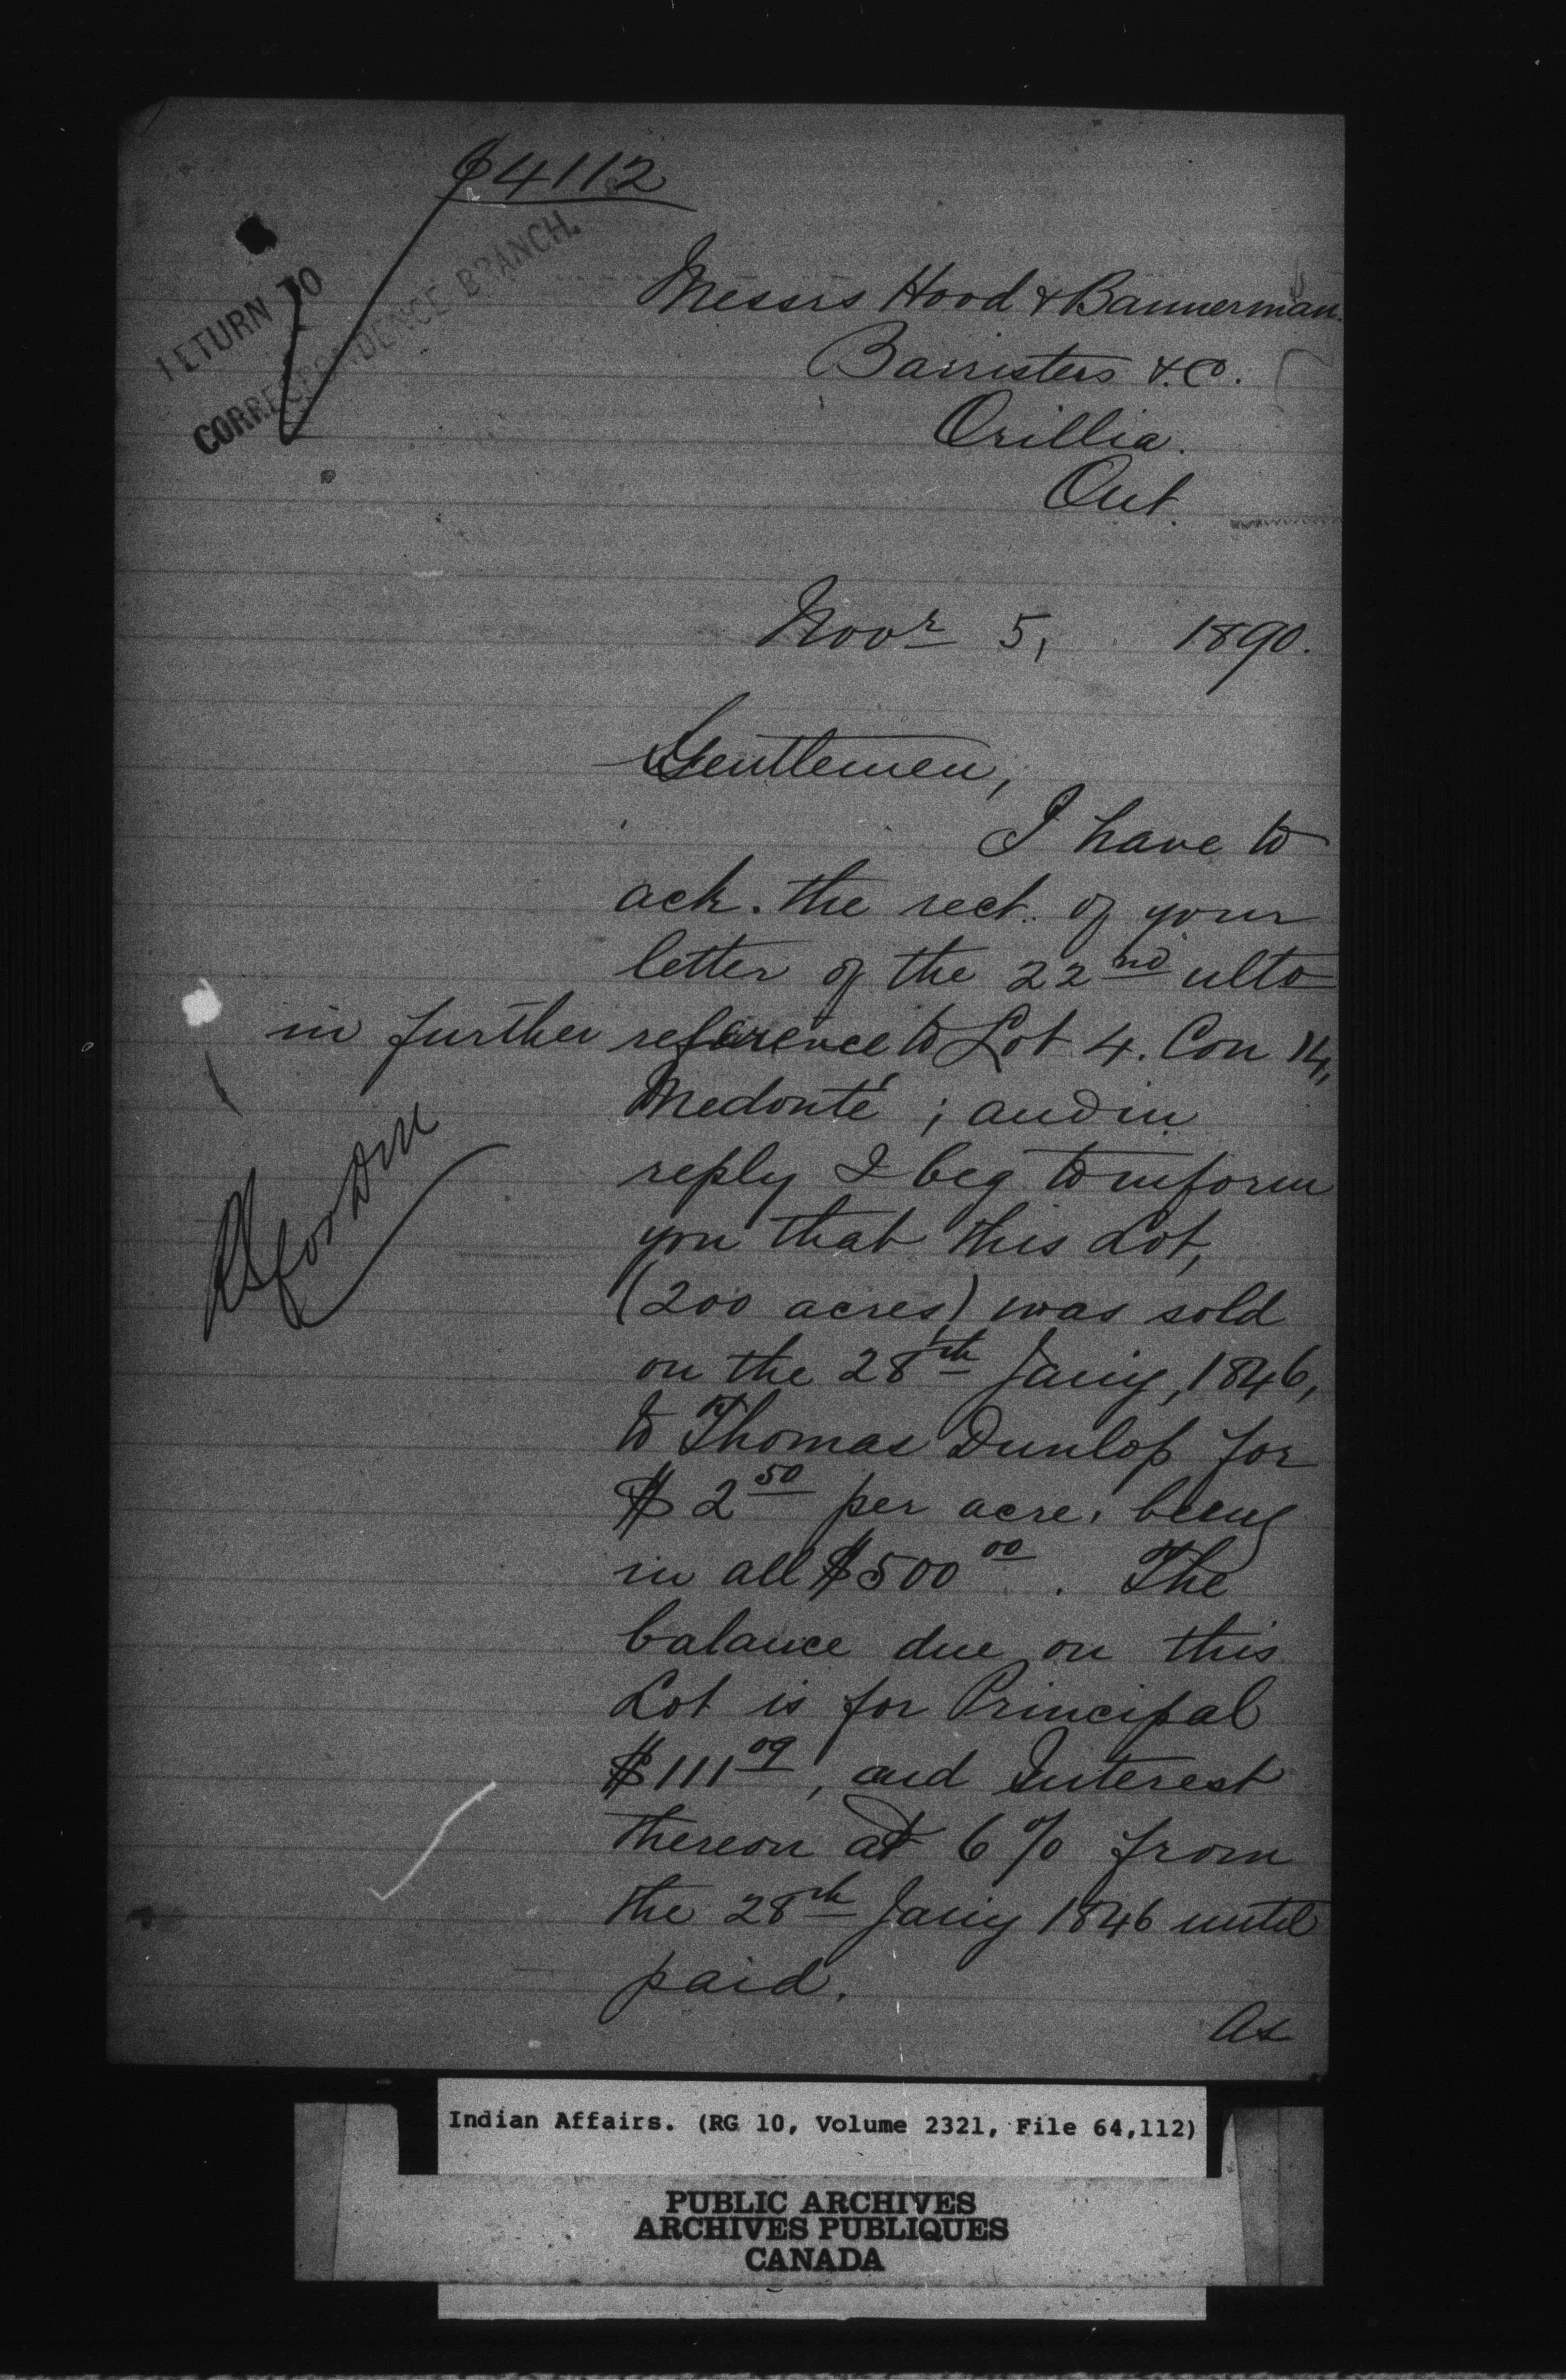 64112
RETURN TO
CORRESPONDENCE BRANCH.
Messrs Hood & Bannerman.
Barristers &.c.
Orillia.
Ont.
Novr 5, 1890.
Gentlemen,
I have to
ack. the rect. of your
letter of the 22nd ulto
in further reference to Lot 4. Con 14,
Medonté ; and in
reply I beg to inform
you that this Lot,
(200 acres) was sold
on the 28th Jany, 1846,
to Thomas Dunlop for
$2 50 per acre, being
in all $500 00. The
balance due on this
Lot is for Principal
$111 09, and Interest
thereon at 6% from
the 28th Jany 1846 until
paid.
As
Indian Affairs. (RG 10, Volume 2321, File 64,112)
PUBLIC ARCHIVES
ARCHIVES PUBLIQUES
CANADA